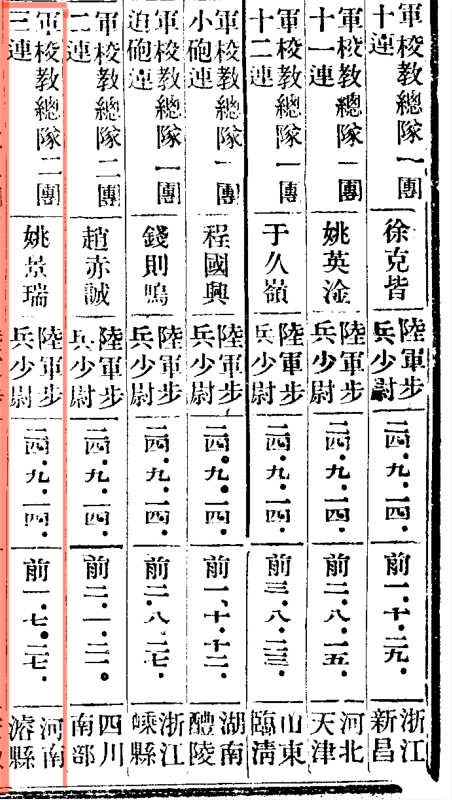 軍校教總隊一團十連 徐克皆 陸軍步兵少尉 二四.九.一四. 前一.十.二九. 浙江新昌
軍校教總隊一團十一連 姚英淦 陸軍步兵少尉 二四.九.一四. 前二.八.一五. 河北天津
軍校教總隊一團十二連 于久嶺 陸軍步兵少尉 二四.九.一四. 前三.八.二三. 山東臨淸
軍校教總隊一團小砲連 程國興 陸軍步兵少尉 二四.九.一四. 前一.十.十二. 湖南醴陵
軍校教總隊一團迫砲連 錢則鳴 陸軍步兵少尉 二四.九.一四. 前二.八.二七. 浙江嵊縣
軍校教總隊二團二連 趙赤誠 陸軍步兵少尉 二四.九.一四. 前二.一.二一. 四川南部
軍校教總隊二團三連 姚景瑞 陸軍步兵少尉 二四.九.一四. 前一.七.二七. 河南濬縣